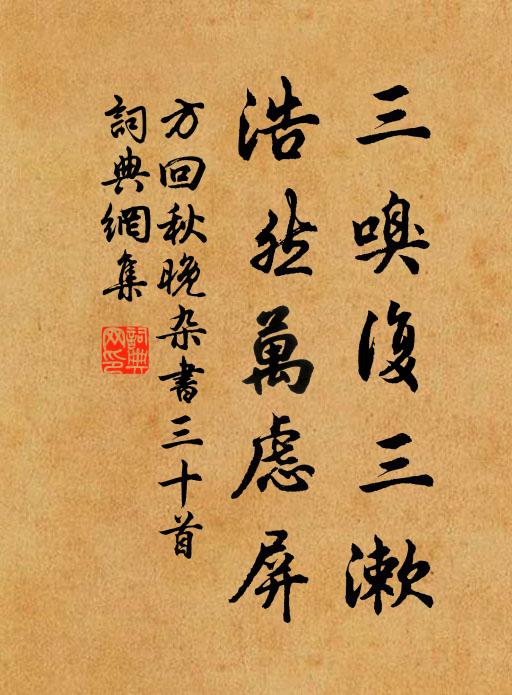 三嗅復三漱
浩然萬慮屏
方回秋晚杂書三十首
詞典網集
詞典网印